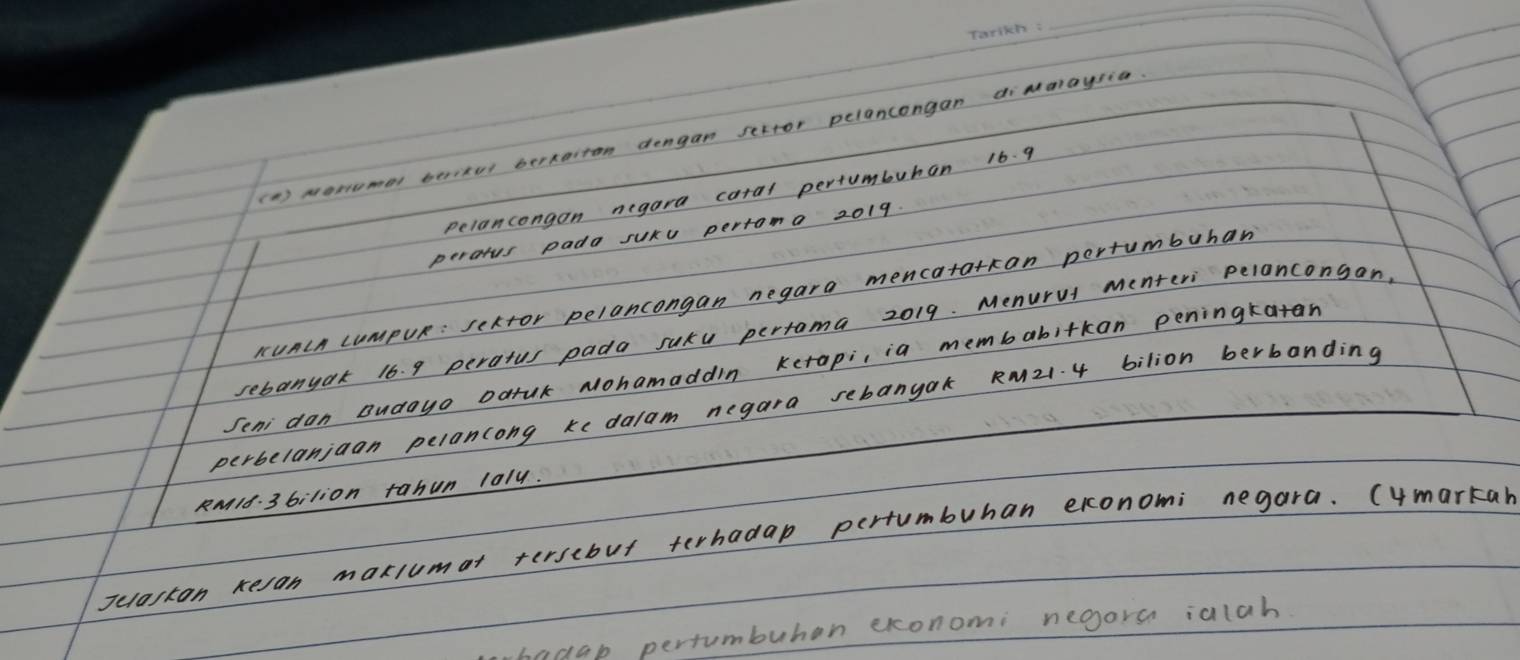 Tarikh :
(a) Maklumat berikut berkaitan dengan sektor pelancongan di Malaysia.
Pelancongan negara catat pertumbuhan 16.9
peratus pada suku pertama 2019.
KUALA LUMPUR: Sektor pelancongan negara mencatatkan pertumbuhan
sebanyak 16.9 peratus pada suku pertama 2019. Menurut Menteri Pelancongan,
Seni dan Budaya Datuk Mohamaddin Ketapi, ia membabitkan peningkatan
perbelanjaan pelancong ke dalam negara sebanyak RM21.4 bilion berbanding
RM18.3 bilion tahun lalu.
Jelaskan kesan maklumat tersebut terhadap pertumbuhan ekonomi negara. (4 markah
pertumbuhan ekonomi negara ialah